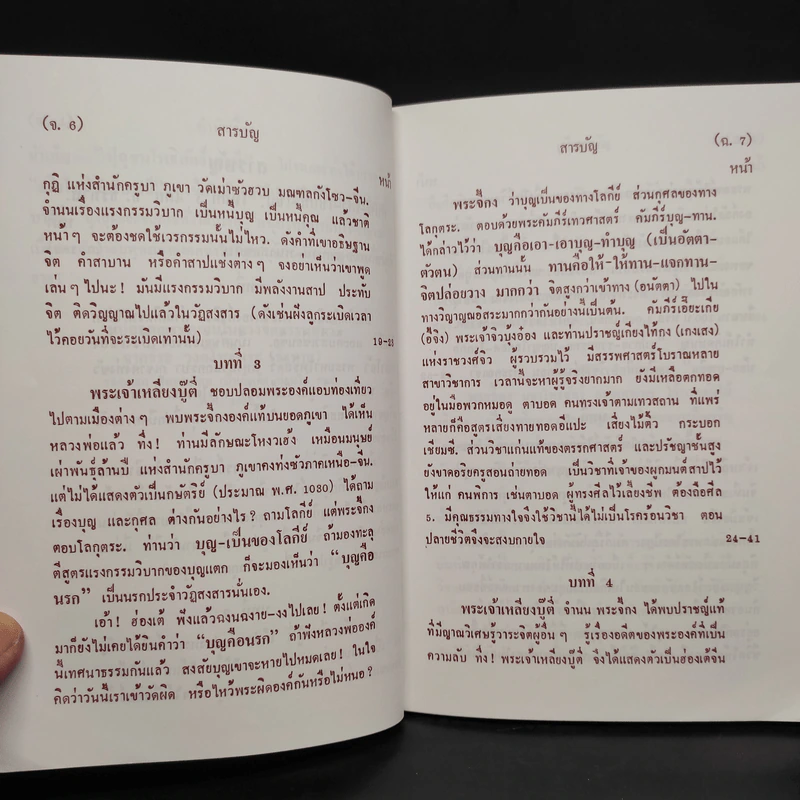 (จ. 6)
สารบัญ
หน้า
กุฏิ แห่งสำนักครูบา ภูเขา วัดเม่าซัวฮวบ มณฑลกังโซว-จีน.
จำนนเรื่องแรงกรรมวิบาก เป็นหนี้บุญ เป็นหนี้คุณ แล้วชาติ
หน้าๆ จะต้องชดใช้เวรกรรมนั้นไม่ไหว. ดังคำที่เขาอธิษฐาน
จิต คำสาบาน หรือคำสาปแช่งต่างๆ จงอย่าเห็นว่าเขาพูด
เล่นๆ ไปนะ! มันมีแรงกรรมวิบาก มีพลังงานสาป ประทับ
จิต ติดวิญญาณไปแล้วในวัฏสงสาร (ดังเช่นฝังลูกระเบิดเวลา
ไว้คอยวันที่จะระเบิดเท่านั้น)
19-23
บทที่ 3
พระเจ้าเหลียงบู๊ตี่ ชอบปลอมพระองค์แอบท่องเที่ยว
ไปตามเมืองต่างๆ พบพระจี้กงองค์แท้บนยอดภูเขา ได้เห็น
หลวงพ่อแล้ว ทึ่ง! ท่านมีลักษณะโหงวเฮ้ง เหมือนมนุษย์
เผ่าพันธุ์ล้านปี แห่งสำนักครูบา ภูเขาคงท่งซัวภาคเหนือ-จีน.
แต่ไม่ได้แสดงตัวเป็นกษัตริย์ (ประมาณ พ.ศ. 1080) ได้ถาม
เรื่องบุญ และกุศล ต่างกันอย่างไร? ถามโลกีย์ แต่พระจี้กง
ตอบโลกุตระ. ท่านว่า บุญ-เป็นของโลกีย์ ถ้ามองทะลุ
ตีสูตรแรงกรรมวิบากของบุญแตก ก็จะมองเห็นว่า “บุญคือ
นรก” เป็นนรกประจำวัฏสงสารนั้นเอง.
เอ้า! ฮ่องเต้ ฟังแล้วฉงนฉงาย-งงไปเลย! ตั้งแต่เกิด
มาก็ยังไม่เคยได้ยินคำว่า “บุญคือนรก” ถ้าฟังหลวงพ่อองค์
นี้เทศนาธรรมกันแล้ว สงสัยบุญเขาจะหายไปหมดเลย! ในใจ
คิดว่าวันนี้เราเข้าวัดผิด หรือไหว้พระผิดองค์กันหรือไม่หนอ?
สารบัญ
(ฉ. 7)
หน้า
พระจี้กง ว่าบุญเป็นของทางโลกีย์ ส่วนกุศลของทาง
โลกุตระ. ตอบด้วยพระคัมภีร์เทวศาสตร์ คัมภีร์บุญ-ทาน.
ได้กล่าวไว้ว่า บุญคือเอา-เอาบุญ-ทำบุญ (เป็นอัตตา-
ตัวตน) ส่วนทานนั้น ทานคือให้-ให้ทาน-แจกทาน-
จิตปล่อยวาง มากกว่า จิตสูงกว่าเข้าทาง (อนัตตา) ไปใน
ทางวิญญาณอิสระมากกว่ากันอย่างนี้เป็นต้น. คัมภีร์เอี๊ยะเกีย
(อี้จิง) พระเจ้าจิวบุ้งอ๋อง และท่านปราชญ์เกียงไท้กง (เกงเสง)
แห่งราชวงศ์จิว ผู้รวบรวมไว้ มีสรรพศาสตร์โบราณหลาย
สาขาวิชาการ เวลานี้จะหาผู้รู้จริงยากมาก ยังมีเหลือตกทอด
อยู่ในมือพวกหมอดู ตาบอด คนทรงเจ้าตามเทวสถาน ที่แพร่
หลายก็คือสูตรเสี่ยงทายทอดอีแปะ เสี่ยงไม้ติ้ว กระบอก
เซียมซี. ส่วนวิชาแก่นแท้ของตรรกศาสตร์ และปรัชญาชั้นสูง
ยังขาดอริยครูสอนถ่ายทอด เป็นวิชาที่เจ้าของผูกมนต์สาปไว้
ให้แก่ คนพิการ เช่นตาบอด ผู้ทรงศีลไว้เลี้ยงชีพ ต้องถือศีล
5. มีคุณธรรมทางใจจึงใช้วิชานี้ได้ไม่เป็นโรคร้อนวิชา ตอน
ปลายชีวิตจึงจะสงบกายใจ
24-41
บทที่ 4
พระเจ้าเหลียงบู๊ตี่ จำนน พระจี้กง ได้พบปราชญ์แท้
ที่มีญาณวิเศษรู้วาระจิตผู้อื่นๆ รู้เรื่องอดีตของพระองค์ที่เป็น
ความลับ ทึ่ง! พระเจ้าเหลียงบู๊ตี่ จึงได้แสดงตัวเป็นฮ่องเต้จีน